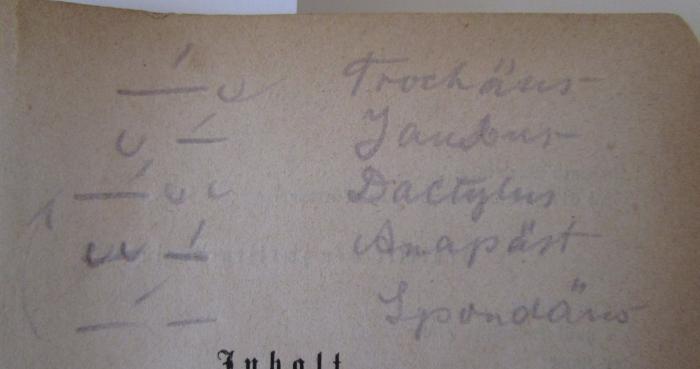 —́ ᴗ Trochäus
ᴗ —́ Jambus
—́ ᴗ ᴗ Dactylus
ᴗᴗ —́ Anapäst
—́ — Spondäus
Inhalt